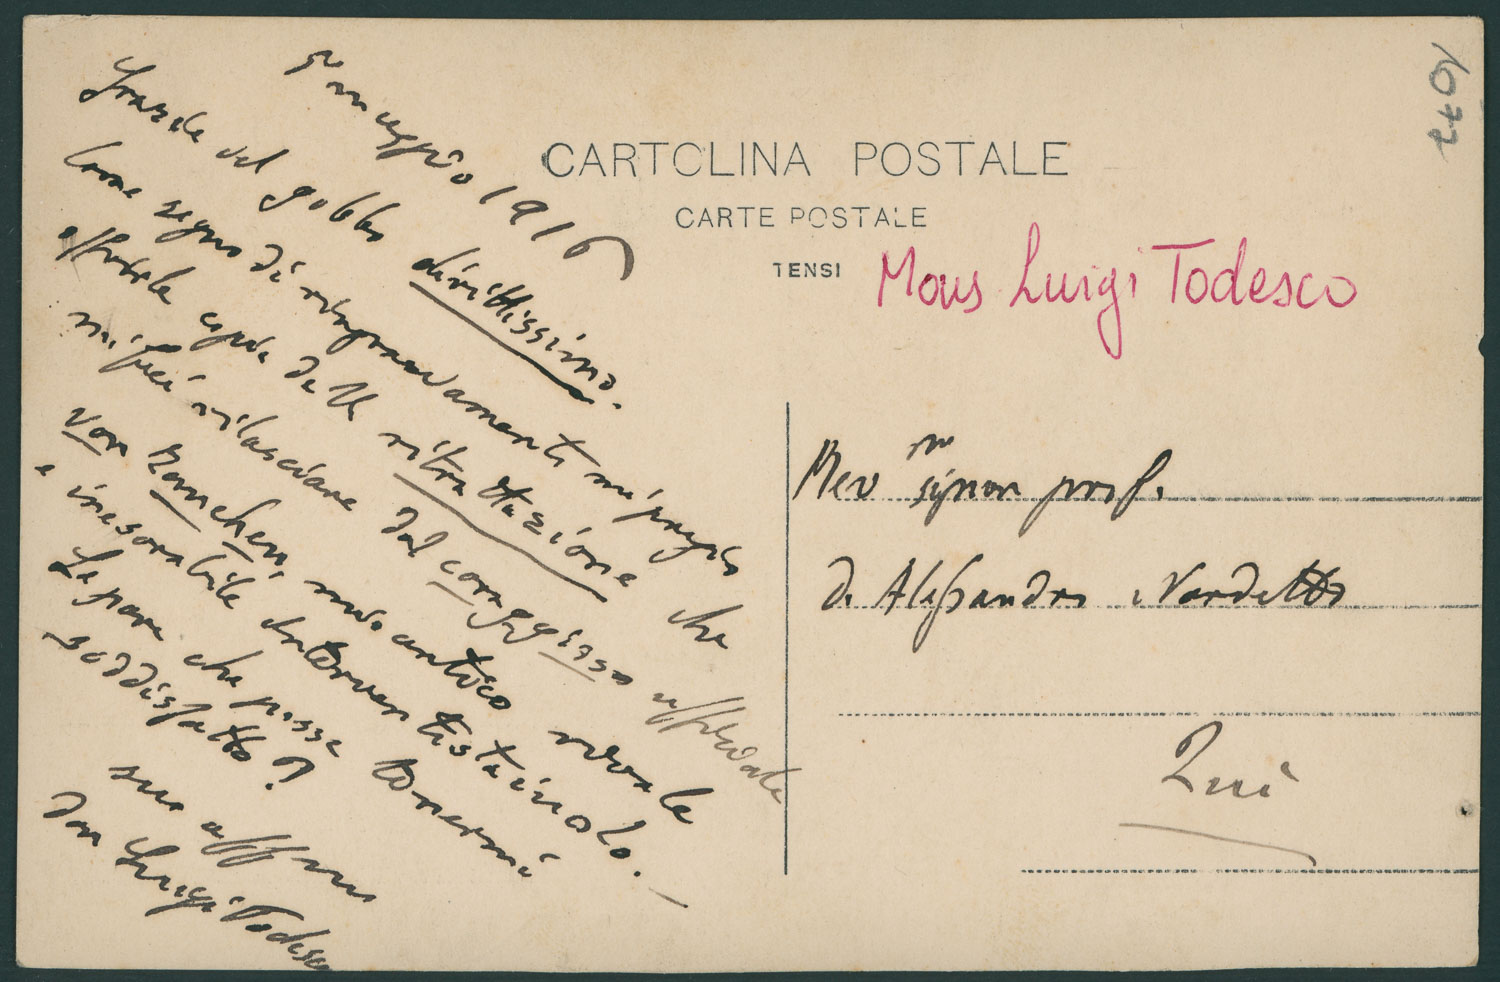 5 maggio 1916
Grazie del gobbo dirittissimo.
Come segno di ringraziamento mi pregio
offrirle copia della ritrattazione che
mi feci rilasciare dal coraggioso
von mio antico rivale
e inesorabile interventistaiuolo. —
Le pare che posse tenermi
soddisfatto?
suo affmo
don Luigi Todesco
CARTOLINA POSTALE
CARTE POSTALE
TENSI
Mons Luigi Todesco
Rev mo signor prof.
D. Alessandro Nardetto
Qui
1077